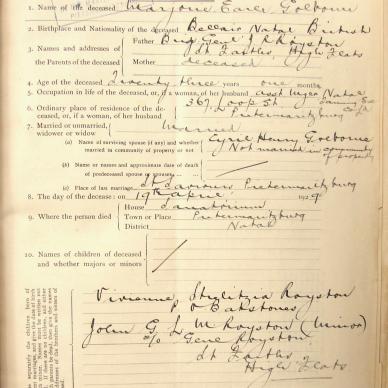 1. Name of the deceased Marjorie Earle Golborne
2. Birthplace and Nationality of the deceased Bellair Natal British
3. Names and addresses of the Parents of the deceased
Father Brig Genl J R Royston
St Faiths, High Flats
Mother deceased
4. Age of the deceased Twenty three years one months
5. Occupation in life of the deceased, or, if a woman, of her husband asst Mgr Natal
6. Ordinary place of residence of the deceased, or, if a woman, of her husband
367 Loop St.
Pietermaritzburg
7. Married or unmarried, widower or widow Married
(a) Name of surviving spouse (if any) and whether married in community of property or not
Cyril Henry Golborne
Not married in community of property
(b) Name or names and approximate date of death of predeceased spouse or spouses
(c) Place of last marriage St Saviours Pietermaritzburg
8. The day of the decease : on 19th April 1929
9. Where the person died
House Sanatorium
Town or Place Pietermaritzburg
District Natal
10. Names of children of deceased and whether majors or minors
Vivienne Royston
John G. L. M Royston (Minor)
c/o Genl Royston
St Faiths
High Flats